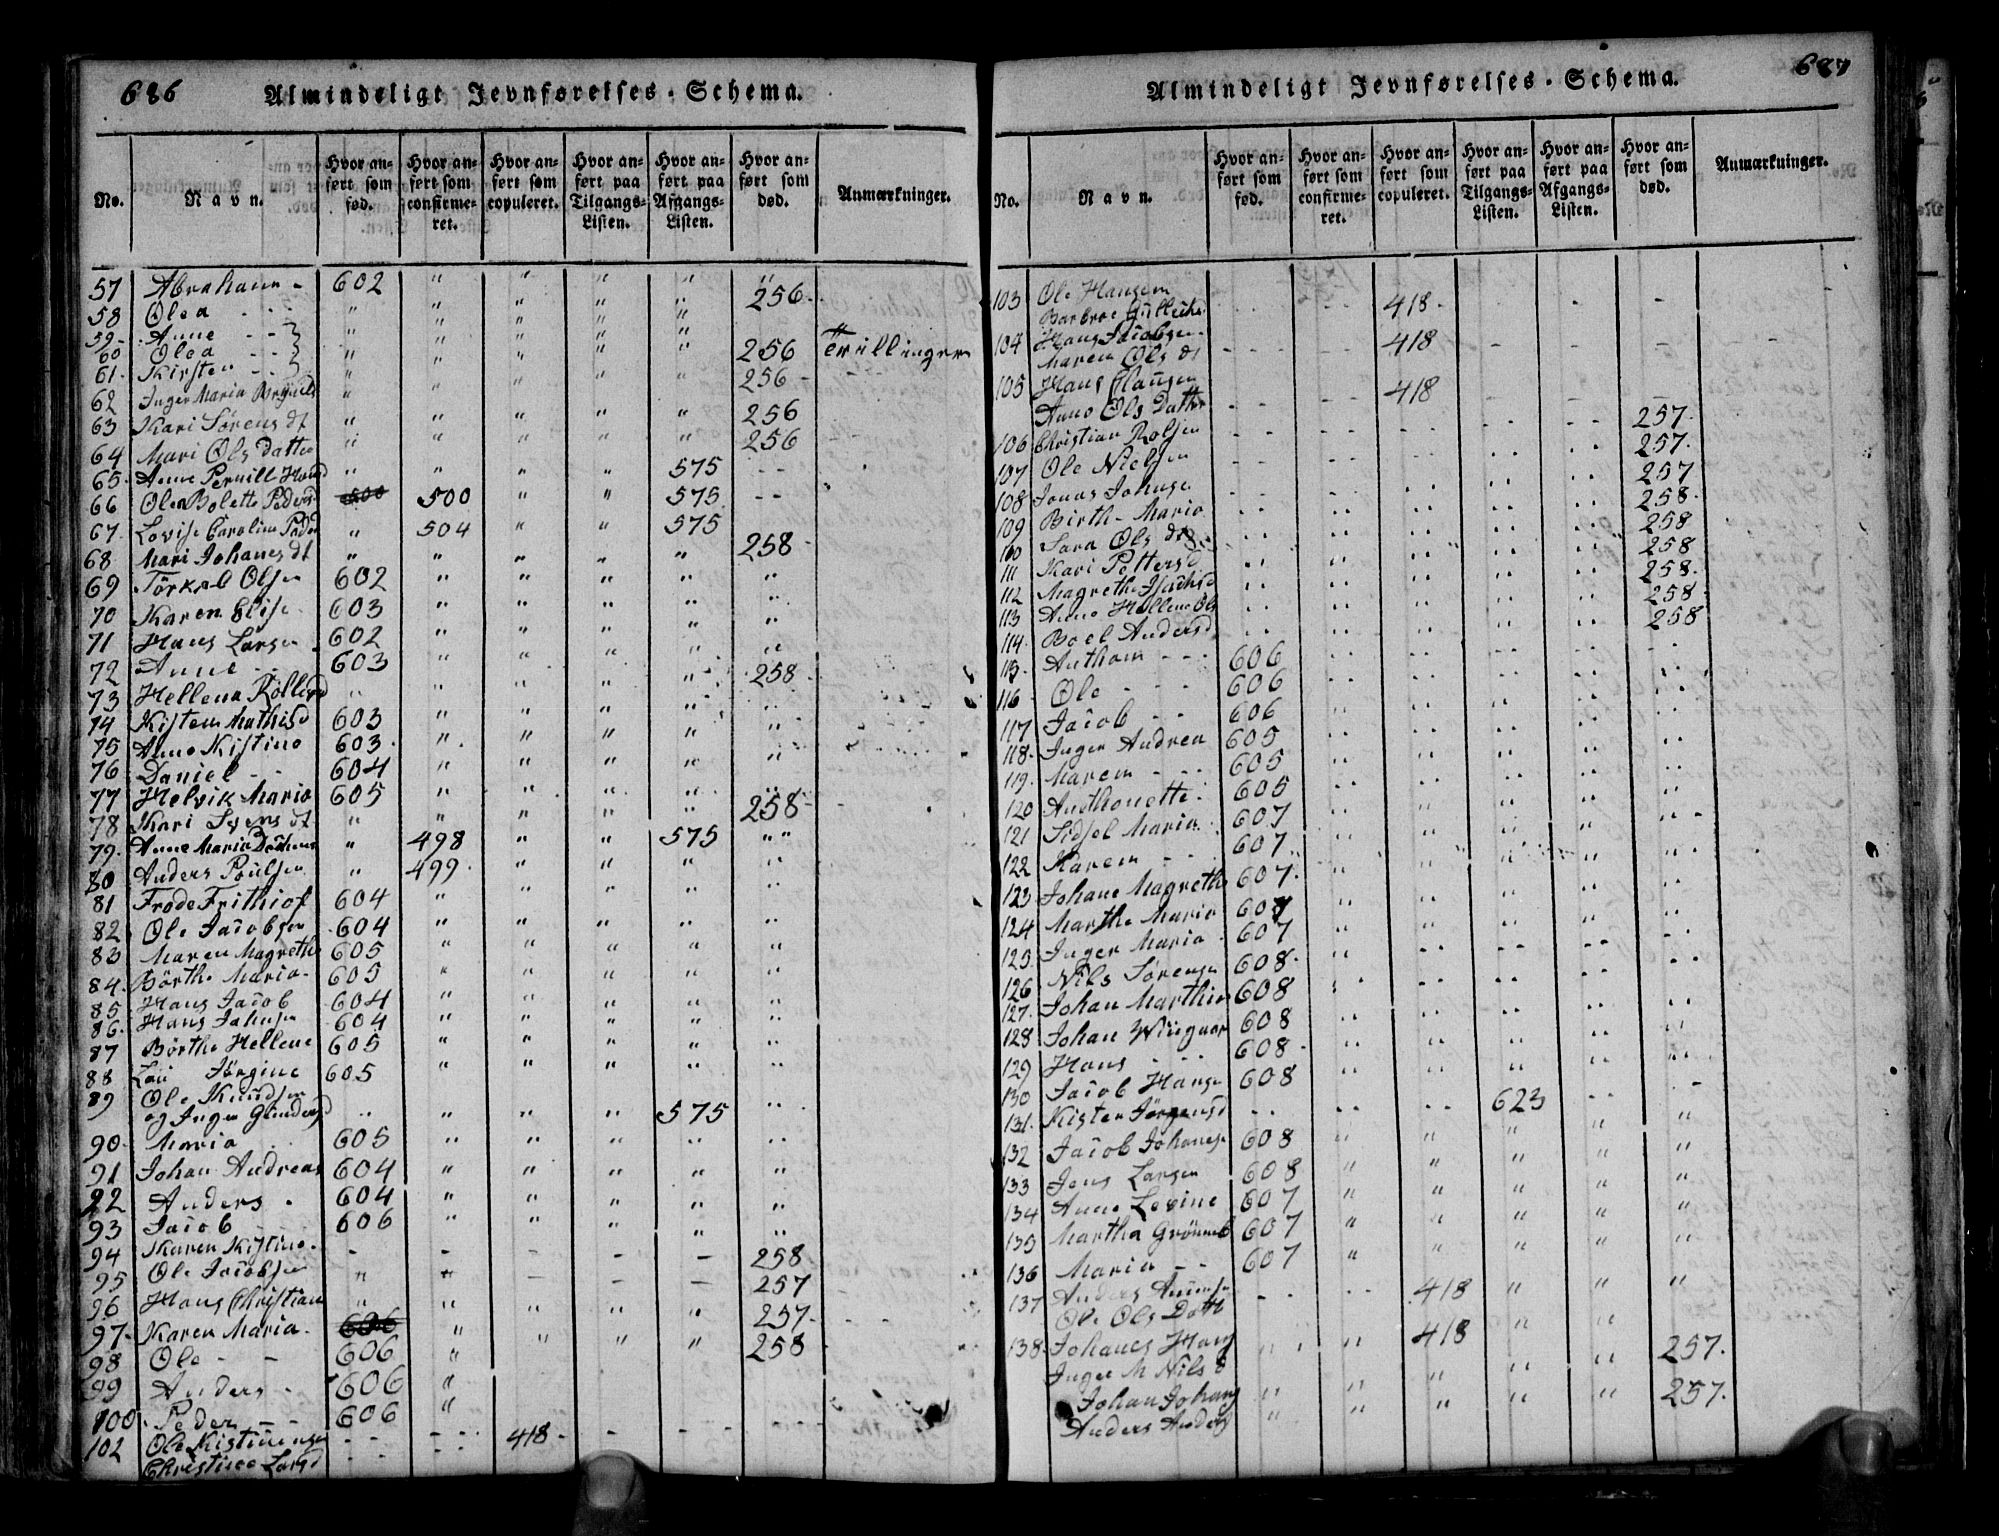 686
Almindeligt Jevnførelses-Schema.
No.
Navn.
Hvor an-
ført som
fød.
Hvor an-
ført som
confirme-
ret.
Hvor an-
ført som
copuleret.
Hvor an-
ført paa
Tilgangs-
Listen.
Hvor an-
ført paa
Afgangs-
Listen.
Hvor an-
ført som
død.
Anmærkninger.
57 Abraham - 602 " " " " "
58 Olea - - - " " " " " 256-
59- Anne - -
60 Olea - - " " " " " 256 Trillinger
61- Kirsten - - " 256 -
62 Inger Maria "
63 Kari Sørens dt " " " " " 256
64 Mari Ols datter " " " " " 256
65- Anne Pernill " " " " 575 - -
66 Olea Bolette Peders 500 " " 575 - -
67. Lovise Caroline Peders " 504 " " 575
68- Mari Johanes dt " " " " " 258 -
69 Törkel Olsen 602 " " " " "
70 Karen Elise 603 " " " " "
71 Hans Larsen 602 " " " " "
72 Anne - - 603 " " " " "
73 Hellena " " " " " 258 -
74 Kisten Mathisd 603 " " " " "
75 Anne Kistine 603 . " " " " "
76 Daniel - - 604 " " " " "
77 Helvik Maria 605 " " " " "
78 Kari Svens dt " " " " " 258-
79. Anne Maria " 498 " " 575 " "
80 Anders Poulsen " 499 . " " " "
81 Frode Frithiof 604 " " " " "
82 Ole Jacobsen 604 " " " " "
83 Maren Magrethe 605 " " " " "
84. Börthe Maria- 605 " " " " "
85 Hans Jacob 604 " " " " "
86. Hans Johnsen 604 " " " " "
87 Börthe Hellene 605 " " " " "
88 Jörgine 605 " " " " "
89 Ole Knudsen
og Inger Gundersd " " " " 575 "
90- Maria 605 " " " " "
91 Johan Andreas 604 " " " " "
92 Anders . 604 " " " " "
93 Jacob 606 " " " " "
94 Karen Kistine. - - - - - 258
95 Ole Jacobsen " " - - - 257
96 Hans Christian " " " " " 257-
97- Karen Maria. " " " " 258
98 Ole - - 606 "
99 Anders - 606 "
100. Peder - - 606 "
102 Ole Kistensen - - - - 418 - - - - - -
Christine Larsd
687
Almindeligt Jevnførelses-Schema.
No.
Navn.
Hvor an-
ført som
fød.
Hvor an-
ført som
confirme-
ret.
Hvor an-
ført som
copuleret.
Hvor an-
ført paa
Tilgangs-
Listen.
Hvor an-
ført paa
Afgangs-
Listen.
Hvor an-
ført som
død.
Anmærkninger.
103 Ole Hansen 418-
Barbroe
104 Hans Jacobsen 418
Maren Ols dt
105 Hans Clausen 418
Anne Ols Datter
106 Christian 257.
107 Ole Nielsen 257.
108 Jonas Johnsen 257
109 Birthe Maria 258.
110 Sara Ols dt 258
111 Kari Pettersd 258
112 Magrethe 258.
113 Anne Hellene Ols 258.
114. Boel Andersd 258
115. Anthom - - - 606
116. Ole - - - 606
117 Jacob - - 606
118. Inger Andrea 605
119. Maren - - - 605
120 Anthonette. 605
121 Sidsel Maria 607
122 Karen - - 607
123 Johane Magrethe 607.
124 Marthe Maria 607
125. Inger Maria 607
126 Nils Sörensen 608.
127. Johan Marthin 608
128 Johan 608
129 Hans - - - 608.
130 Jacob Hansen 608
131. Kisten Jörgensd 623
132 Jacob Johanesen 608
133 Jens Larsen 608
134 Anne Lovine 607
135 Martha 607
136 Maria - - 607
137 Anders 418
Ole Ols Datter
138. Johanes Hans 418 257.
Inger M Nils d
Johan Johans 257.
Anders Anders